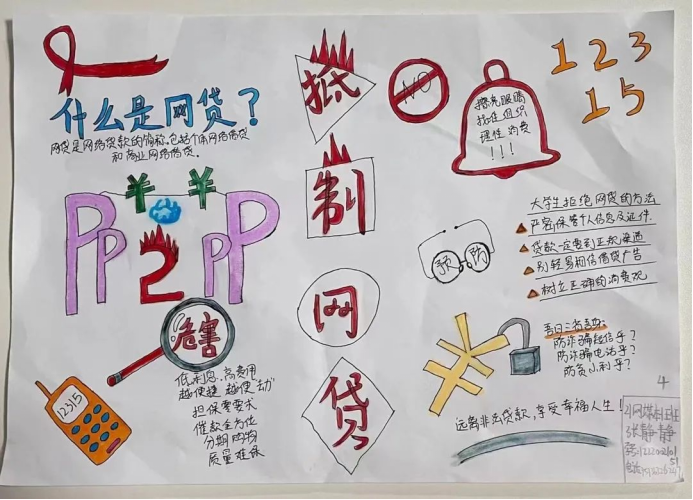 什么是网贷？
网贷是网络贷款的简称，包括个体网络借贷
和商业网络借贷。
¥ ¥
PP 2 PP
危害
低利息，高费用
越便捷 越便扰
担保零要求
催款全方位
分期购物
质量难保
12315
抵
制
网
贷
NO
擦亮眼睛
理性消费
!!!
123
15
预防
大学生拒绝网贷的方法
严密保管个人信息及证件
贷款一定要到正规渠道
别轻易相信借贷广告
树立正确的消费观
吾日三省吾身：
防诈骗短信乎？
防诈骗电话乎？
防贪小利乎？
远离非法贷款，享受幸福人生！
4
张静静